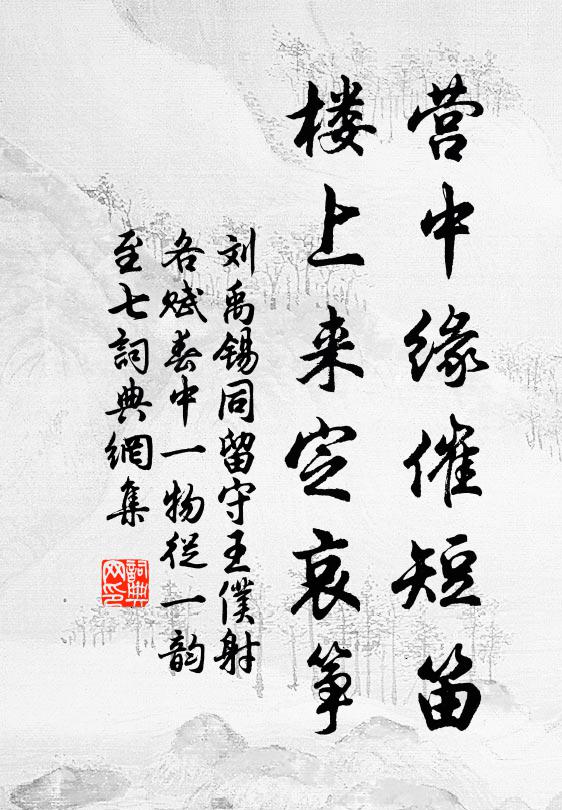 营中缘催短笛
楼上来定哀筝
刘禹锡同留守王僕射
各赋春中一物从一韵
至七詞典網集
詞典网印